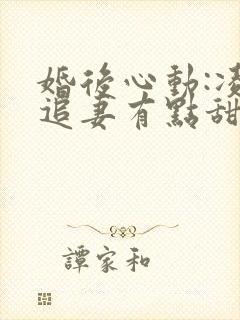 婚後心動:凌
追妻有點甜
譚家和